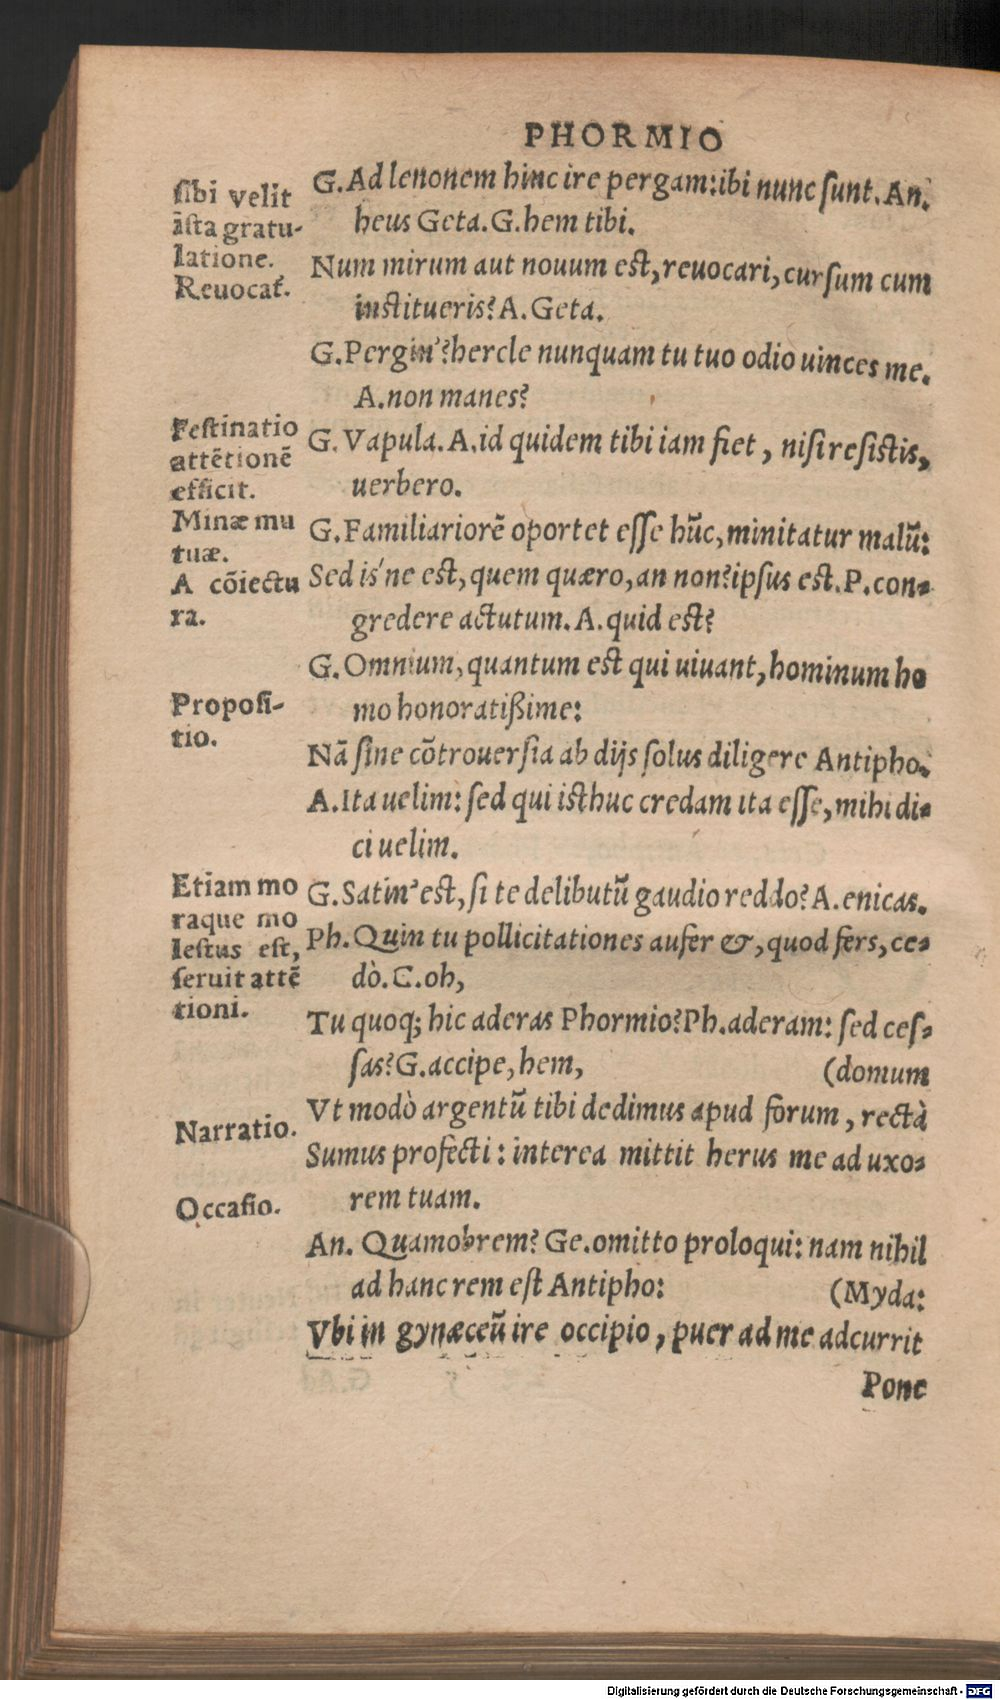 PHORMIO
sibi velit
ĩsta gratu-
latione.
Reuocat.
G. Ad lenonem hinc ire pergam: ibi nunc sunt. An.
heus Geta. G. hem tibi.
Num mirum aut nouum est, reuocari, cursum cum
institueris? A. Geta.
G. Pergin'? hercle nunquam tu tuo odio uinces me.
A. non manes?
Festinatio
attētionē
efficit.
G. Vapula. A. id quidem tibi iam fiet, nisi resistis,
uerbero.
Minæ mu
tuæ.
G. Familiariorē oportet esse hūc, minitatur malū:
A cōiectu
ra.
Sed is'ne est, quem quæro, an non? ipsus est. P. con-
gredere actutum. A. quid est?
G. Omnium, quantum est qui uiuant, hominum ho
mo honoratißime:
Proposi-
tio.
Nā sine cōtrouersia ab dijs solus diligere Antipho.
A. Ita uelim: sed qui isthuc credam ita esse, mihi di-
ci uelim.
Etiam mo
raque mo
lestus est,
seruit attē
tioni.
G. Satin' est, si te delibutū gaudio reddo? A. enicas.
Ph. Quin tu pollicitationes aufer &, quod fers, ce-
dò. G. oh,
Tu quoq; hic aderas Phormio? Ph. aderam: sed ces-
sas? G. accipe, hem, (domum
Narratio.
Vt modò argentū tibi dedimus apud forum, rectà
Sumus profecti: interea mittit herus me ad uxo-
rem tuam.
Occasio.
An. Quamobrem? Ge. omitto proloqui: nam nihil
ad hanc rem est Antipho: (Myda:
Vbi in gynæceū ire occipio, puer ad me adcurrit
Pone
Digitalisierung gefördert durch die Deutsche Forschungsgemeinschaft - DFG